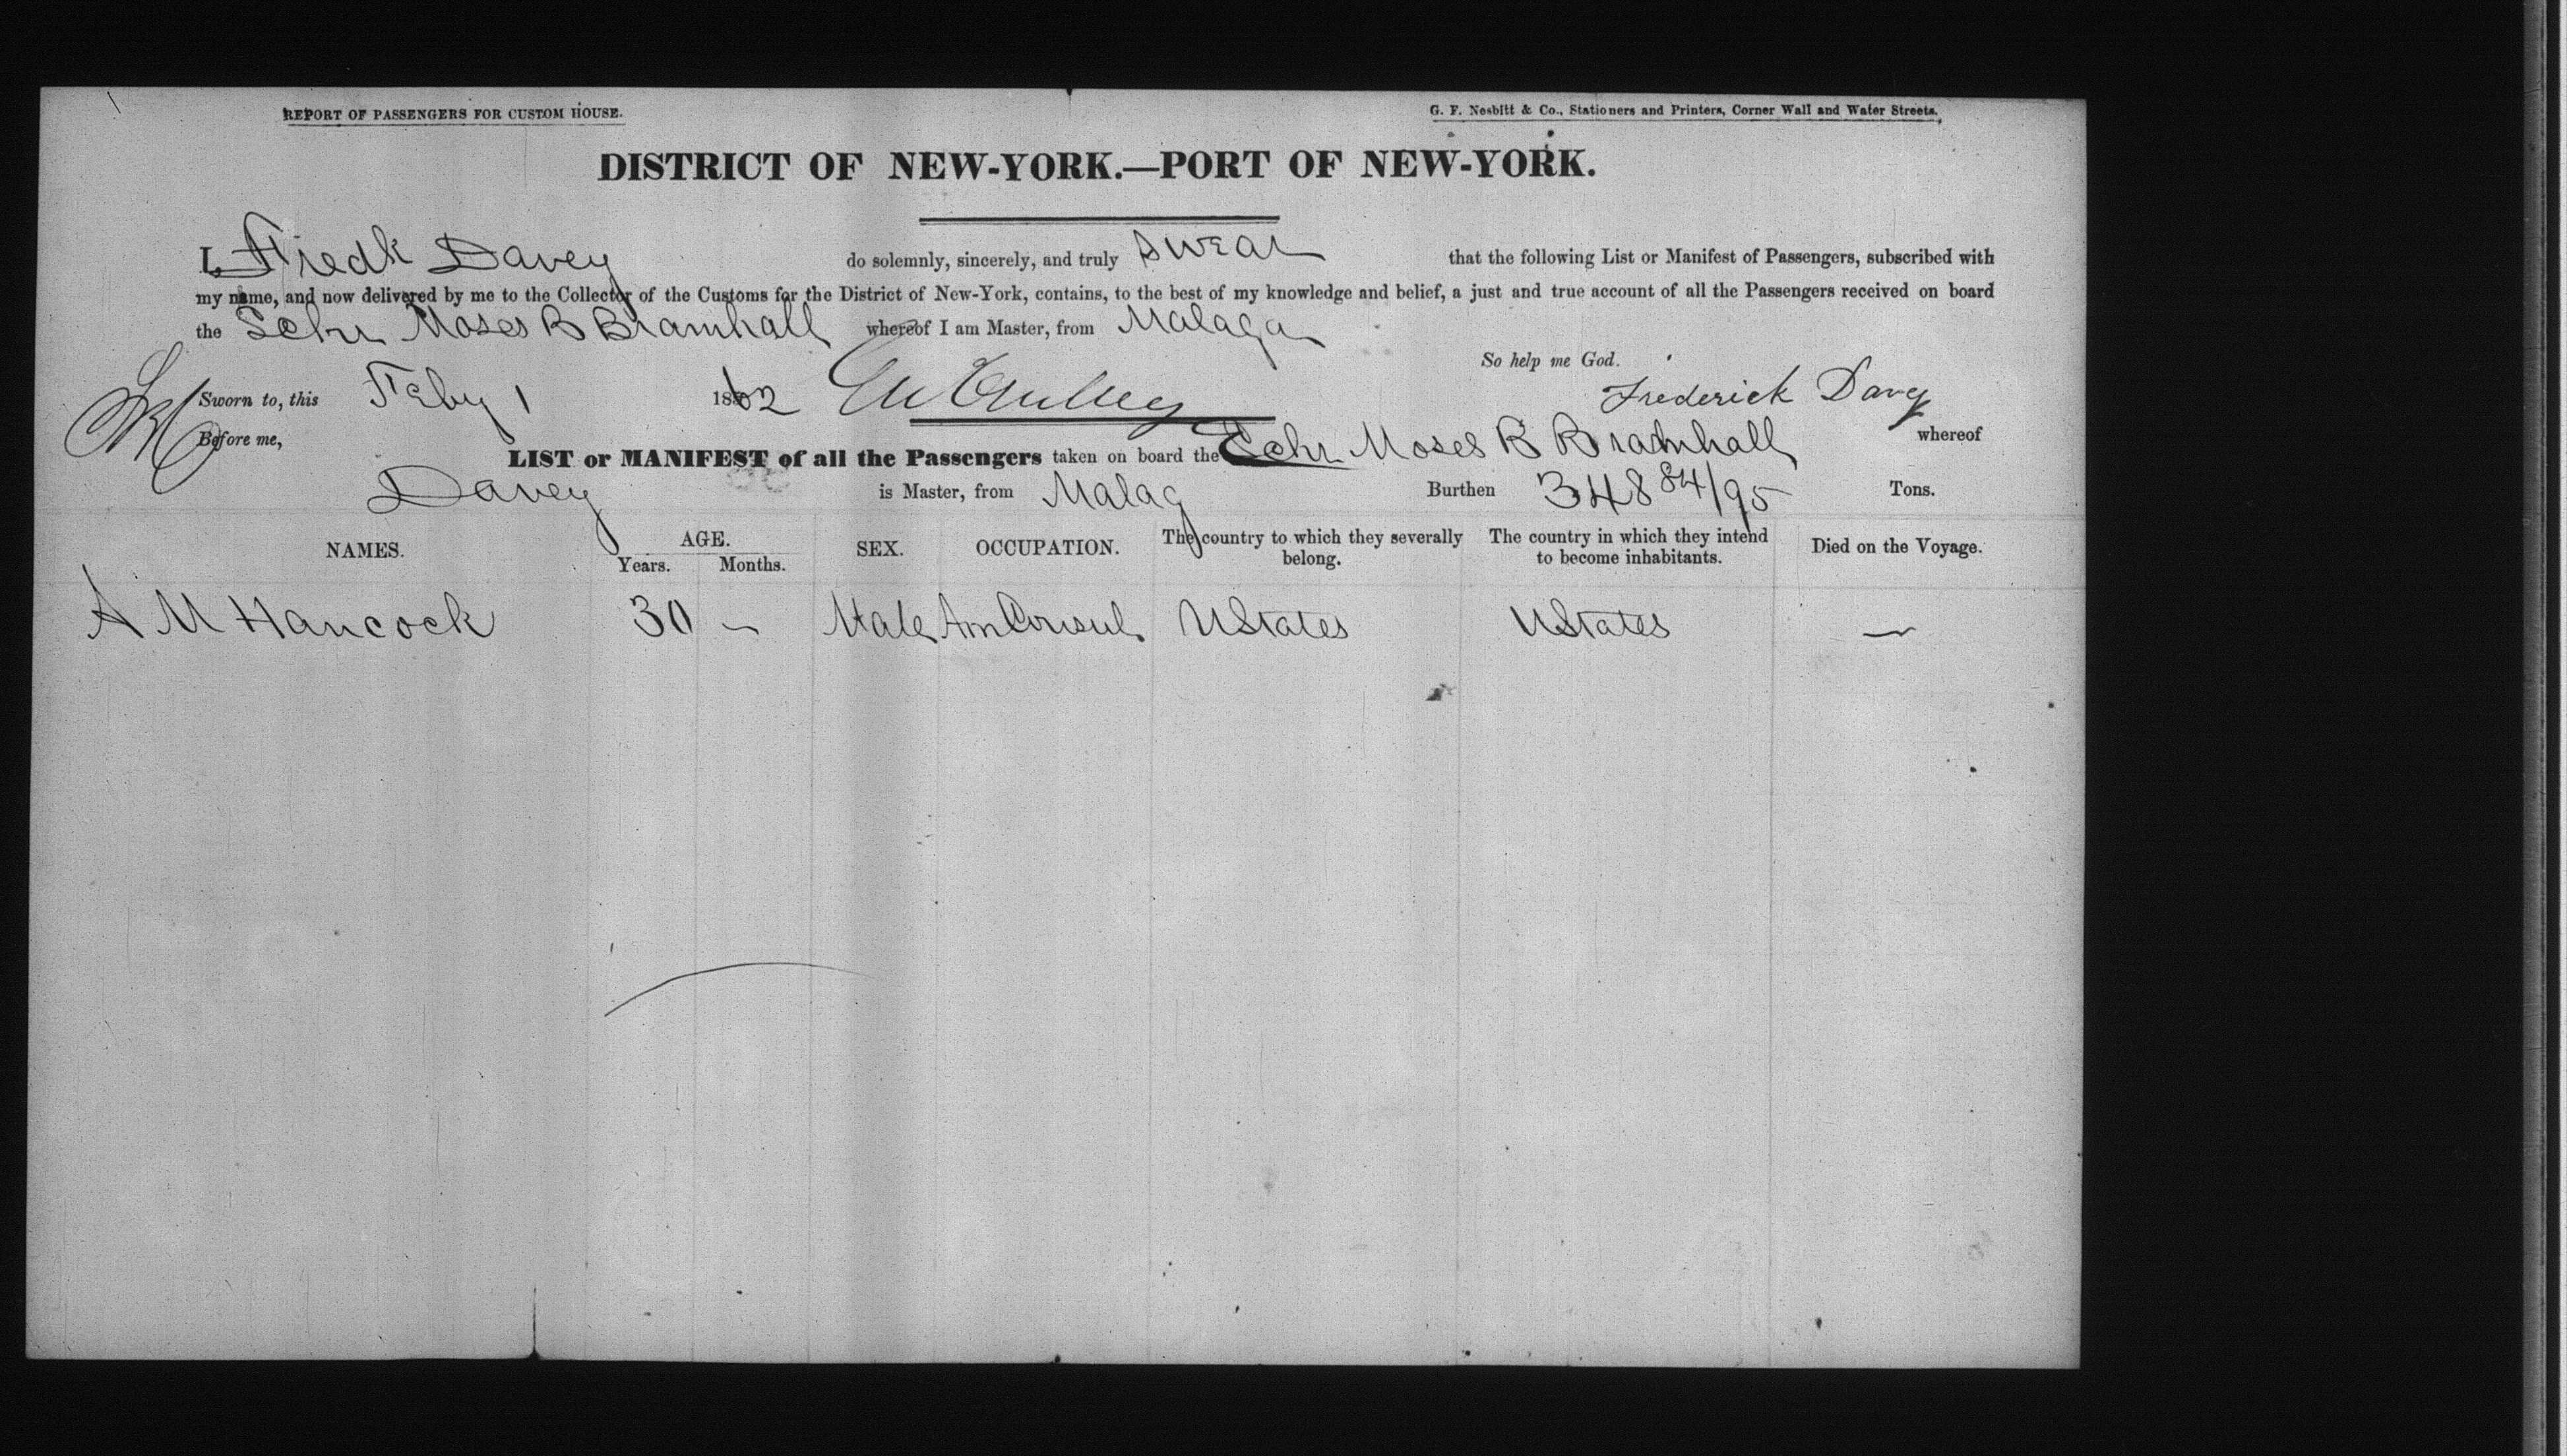 REPORT OF PASSENGERS FOR CUSTOM HOUSE.
G. F. Nesbitt & Co., Stationers and Printers, Corner Wall and Water Streets.
DISTRICT OF NEW-YORK.—PORT OF NEW-YORK.
I, Fredk Davey do solemnly, sincerely, and truly swear that the following List or Manifest of Passengers, subscribed with
my name, and now delivered by me to the Collector of the Customs for the District of New-York, contains, to the best of my knowledge and belief, a just and true account of all the Passengers received on board
the Schr Moses B Bramhall whereof I am Master, from Malaga
So help me God.
Sworn to, this Feby 1 1862 Frederick Davey
Before me,
LIST or MANIFEST of all the Passengers taken on board the Schr Moses B Bramhall whereof
Davey is Master, from Malag Burthen 348 84/95 Tons.
NAMES. AGE. Years. Months. SEX. OCCUPATION. The country to which they severally belong. The country in which they intend to become inhabitants. Died on the Voyage.
A M Hancock 30 — Male Am Consul UStates UStates —